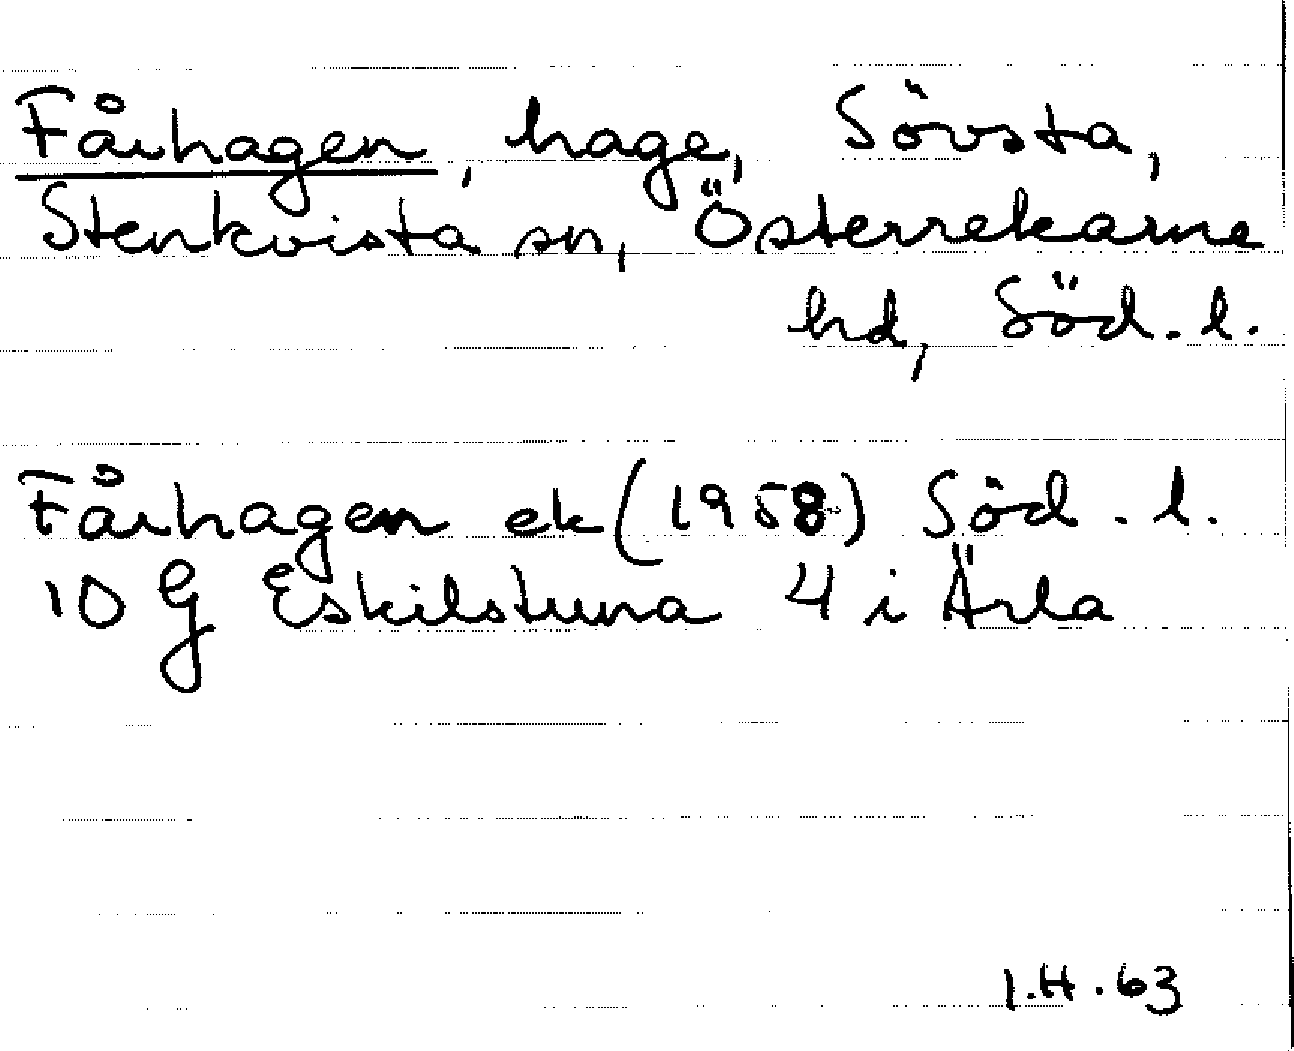 Fårhagen, hage, Sövsta,
Stenkvista sn, Österrekarne
hd, Söd. l.
Fårhagen ek (1958) Söd. l.
10 G Eskilstuna 4 i Ärla
I.H. 63